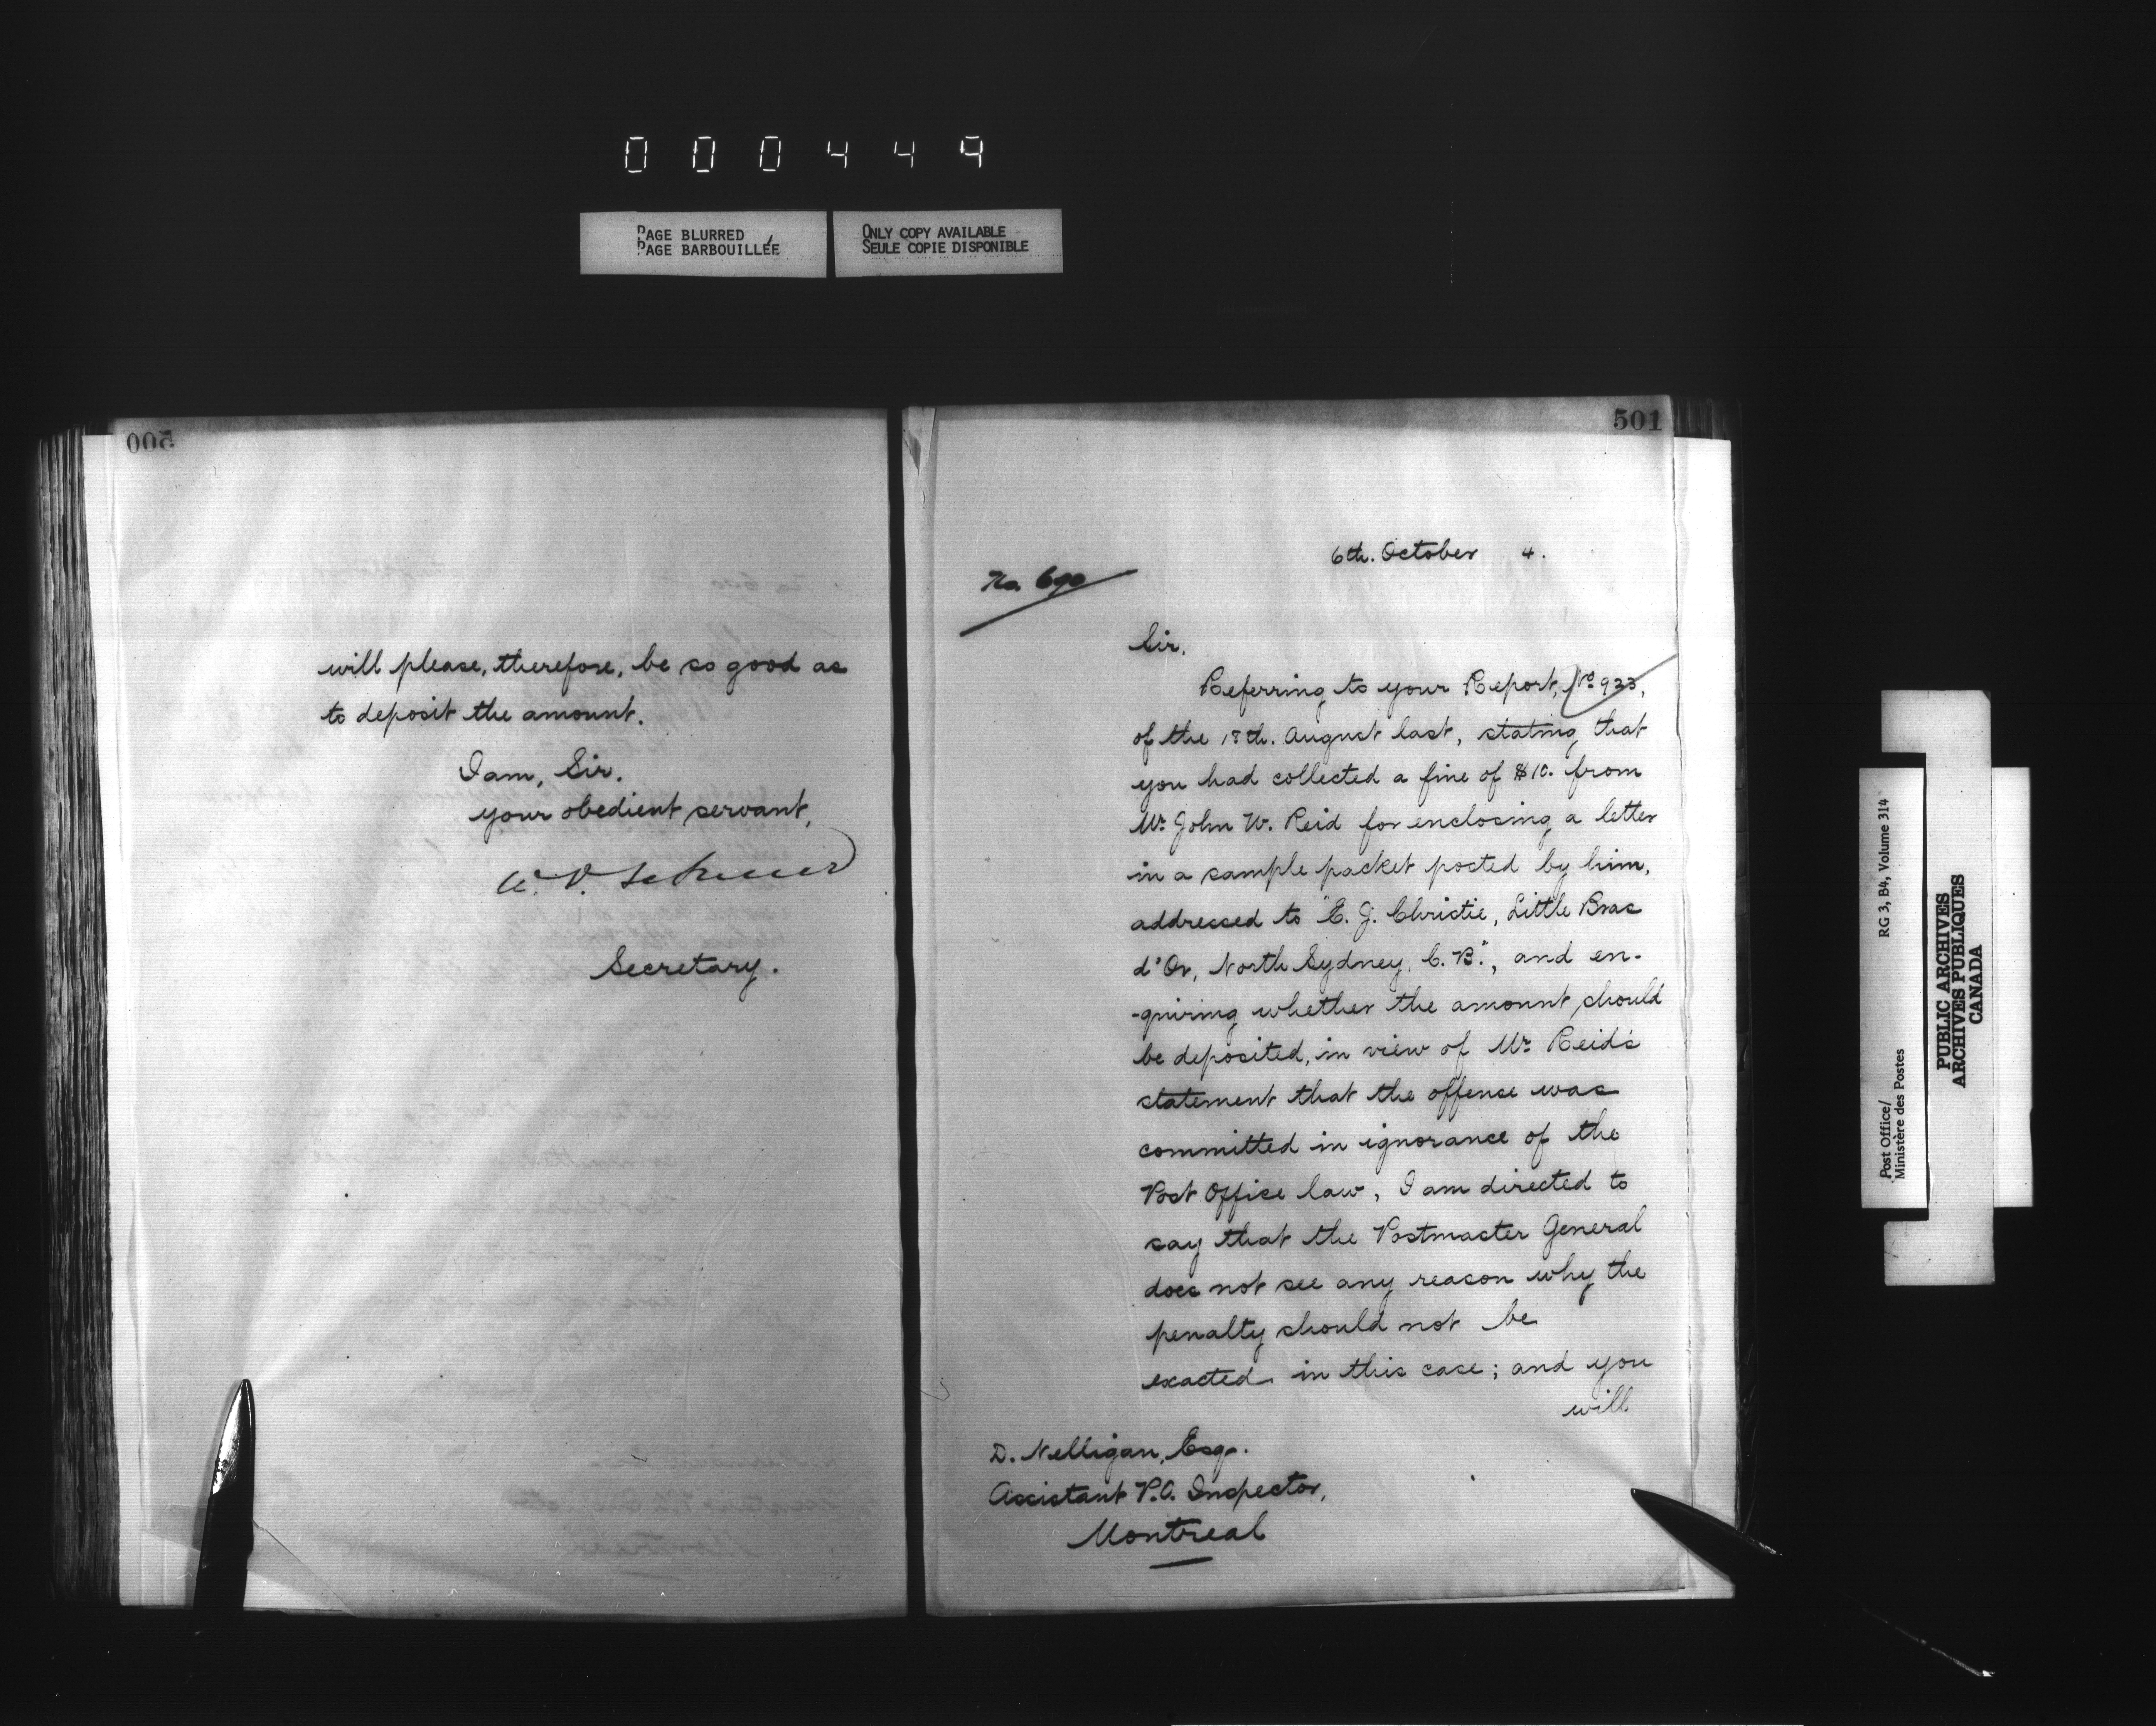 000449
PAGE BLURRED
PAGE BARBOUILLÉE
ONLY COPY AVAILABLE
SEULE COPIE DISPONIBLE
500
will please, therefore, be so good as
to deposit the amount.
I am, Sir,
your obedient servant,
Secretary.
501
6th. October 4.
No. 690
Sir,
Referring to your Report, No. 923,
of the 18th. August last, stating that
you had collected a fine of $10. from
Mr. John W. Reid for enclosing a letter
in a sample packet posted by him,
addressed to "E. J. Christie, Little Bras
d'Or, North Sydney, C. B.", and en-
-quiring whether the amount should
be deposited, in view of Mr. Reid's
statement that the offense was
committed in ignorance of the
Post Office law, I am directed to
say that the Postmaster General
does not see any reason why the
penalty should not be
exacted in this case; and you
will
D. Nelligan, Esq.
Assistant P.O. Inspector,
Montreal
Post Office/
Ministère des Postes
RG 3, B4, Volume 314
PUBLIC ARCHIVES
ARCHIVES PUBLIQUES
CANADA